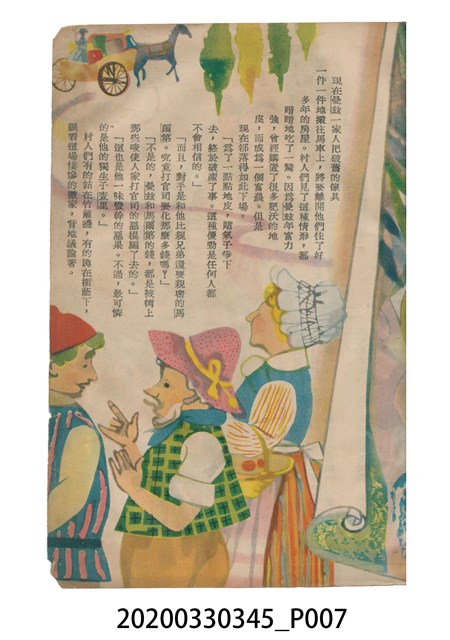 現在曼茲一家人把破舊的傢具
一件一件地搬往馬車上，將要離開他們住了好
多年的房屋。村人們見了這種情形，都
暗暗地吃了一驚。因為曼茲年富力
強，曾經購置了很多肥沃的地
皮，而成為一個富農。但是
現在卻落得如此下場。
「為了一點點地皮，賭氣子爭下
去，終於破產了事。這種傻勁是任何人都
不會相信的。」
「而且，對手是和他比親兄弟還要親密的馬
爾第。究竟打官司要化那麼多錢嗎？」
「不是的，曼茲和馬爾第的錢，都是被惆上
那些唆使人家打官司的惡棍騙了去的。」
「這也是他一味蠻幹的惡果。不過，最可憐
的是他的獨生子查里。」
村人們有的站在竹籬邊，有的蹲在樹蔭下，
眼看這場悽慘的搬家，背地議論著。
20200330345_P007